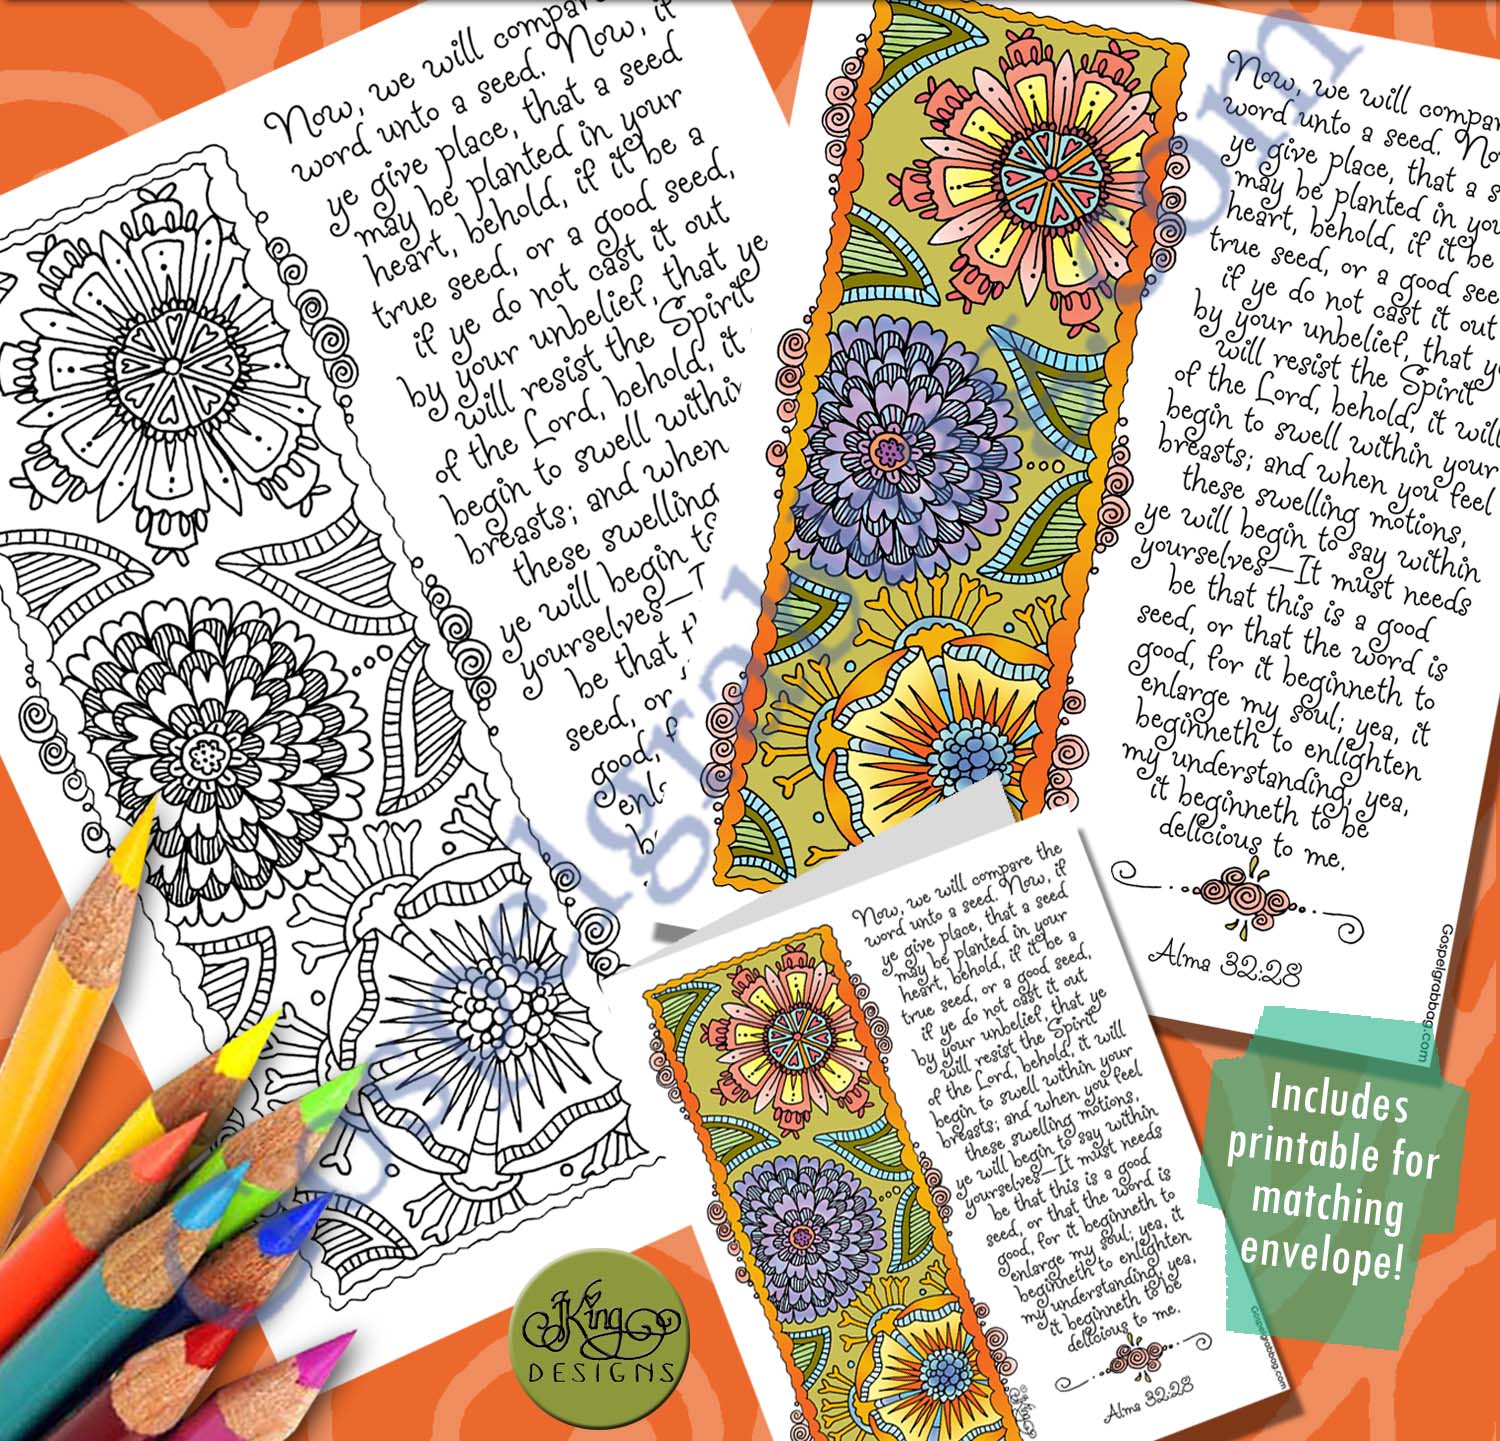 Now, we will compare
word unto a seed. Now, if
ye give place, that a seed
may be planted in your
heart, behold, if it be a
true seed, or a good seed,
if ye do not cast it out
by your unbelief, that ye
will resist the Spirit
of the Lord, behold, it
begin to swell within
breasts; and when
these swelling
ye will begin
yourselves—
be that
seed, or
good,
Now, we will
word unto a seed.
ye give place, that a
may be planted in
heart, behold, if it be
true seed, or a good
if ye do not cast it out
by your unbelief, that
will resist the Spirit
of the Lord, behold, it will
begin to swell within your
breasts; and when you feel
these swelling motions,
ye will begin to say within
yourselves—It must needs
be that this is a good
seed, or that the word is
good, for it beginneth to
enlarge my soul; yea, it
beginneth to enlighten
my understanding, yea,
it beginneth to be
delicious to me.
Alma 32:28
Gospelgrabbag.com
Now, we will compare the
word unto a seed. Now, if
ye give place, that a seed
may be planted in your
heart, behold, if it be a
true seed, or a good seed,
if ye do not cast it out
by your unbelief, that ye
will resist the Spirit
of the Lord, behold, it will
begin to swell within your
breasts; and when you feel
these swelling motions,
ye will begin to say within
yourselves—It must needs
be that this is a good
seed, or that the word is
good, for it beginneth to
enlarge my soul; yea, it
beginneth to enlighten
my understanding, yea,
it beginneth to be
delicious to me.
Alma 32:28
Gospelgrabbag.com
Includes
printable for
matching
envelope!
JKing
DESIGNS